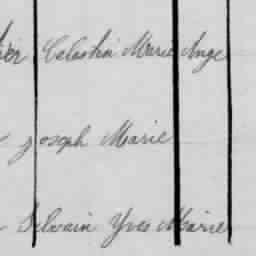 Celestin Marie Ange
Joseph Marie
Silvain Yves Marie